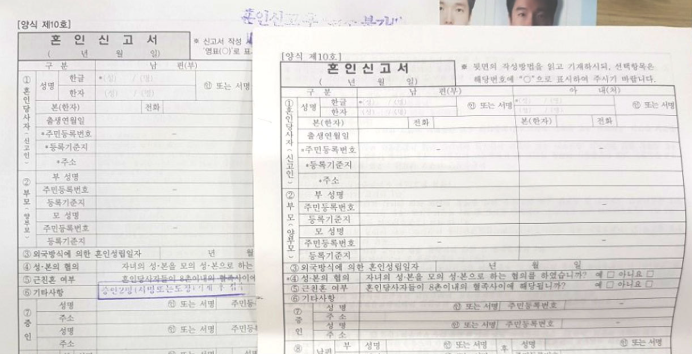 [양식 제10호]
혼 인 신 고 서
( 년 월 일 )
구 분
남 편(부)
①혼인당사자(신고인)
성명
한글
한자
㊞ 또는 서명
본(한자)
전화
출생연월일
*주민등록번호
-
*등록기준지
*주소
②부모
부 성명
주민등록번호
-
등록기준지
모 성명
주민등록번호
-
등록기준지
③외국방식에 의한 혼인성립일자 년 월
④성·본의 협의 자녀의 성·본을 모의 성·본으로 하는
⑤근친혼 여부 혼인당사자들이 8촌이내의 혈족사이에
⑥기타사항
⑦증인
성명 ㊞ 또는 서명 주민등
주소
성명 ㊞ 또는 서명
주소
[양식 제10호]
혼 인 신 고 서
( 년 월 일 )
※ 뒷면의 작성방법을 읽고 기재하시되, 선택항목은
해당번호에 "○"으로 표시하여 주시기 바랍니다.
구 분
남 편(부)
아 내(처)
①혼인당사자(신고인)
성명
한글
㊞ 또는 서명
㊞ 또는 서명
한자
본(한자) 전화 본(한자) 전화
출생연월일
*주민등록번호 - -
*등록기준지
*주소
②부모
부 성명
주민등록번호 - -
등록기준지
모 성명
주민등록번호 - -
등록기준지
③외국방식에 의한 혼인성립일자 년 월 일
*④성·본의 협의 자녀의 성·본을 모의 성·본으로 하는 협의를 하였습니까? 예 □ 아니요 □
⑤근친혼 여부 혼인당사자들이 8촌이내의 혈족사이에 해당됩니까? 예 □ 아니요 □
⑥기타사항
⑦증인
성명 ㊞ 또는 서명 주민등록번호 -
주소
성명 ㊞ 또는 서명 주민등록번호 -
주소
⑧
남편
부 성명 ㊞ 또는 서명